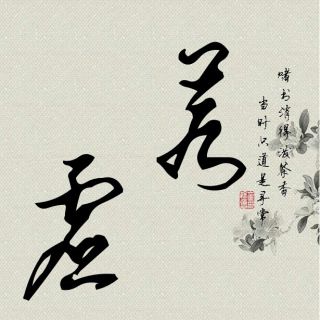 赌书消得泼茶香
当时只道是寻常
若虚